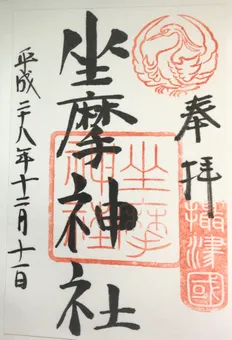 奉拝
摂津國
坐摩神社
坐摩神社
平成二十八年十二月十一日